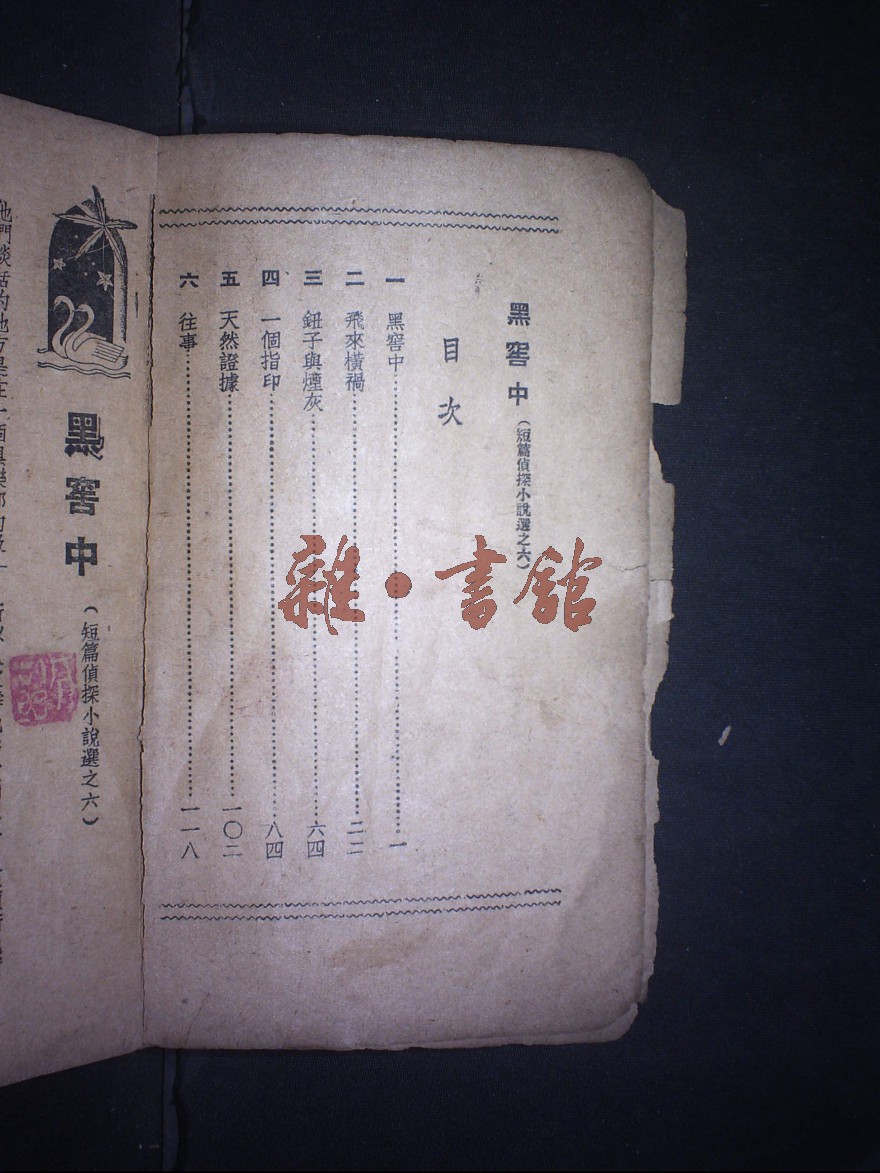 黑窖中（短篇偵探小說選之六）
目次
一 黑窖中……一
二 飛來橫禍……二二
三 鈕子與煙灰……六四
四 一個指印……八四
五 天然證據……一〇二
六 往事……一一八
雜·書館
黑窖中
（短篇偵探小說選之六）
他們談話的地方是在一個俱樂部的